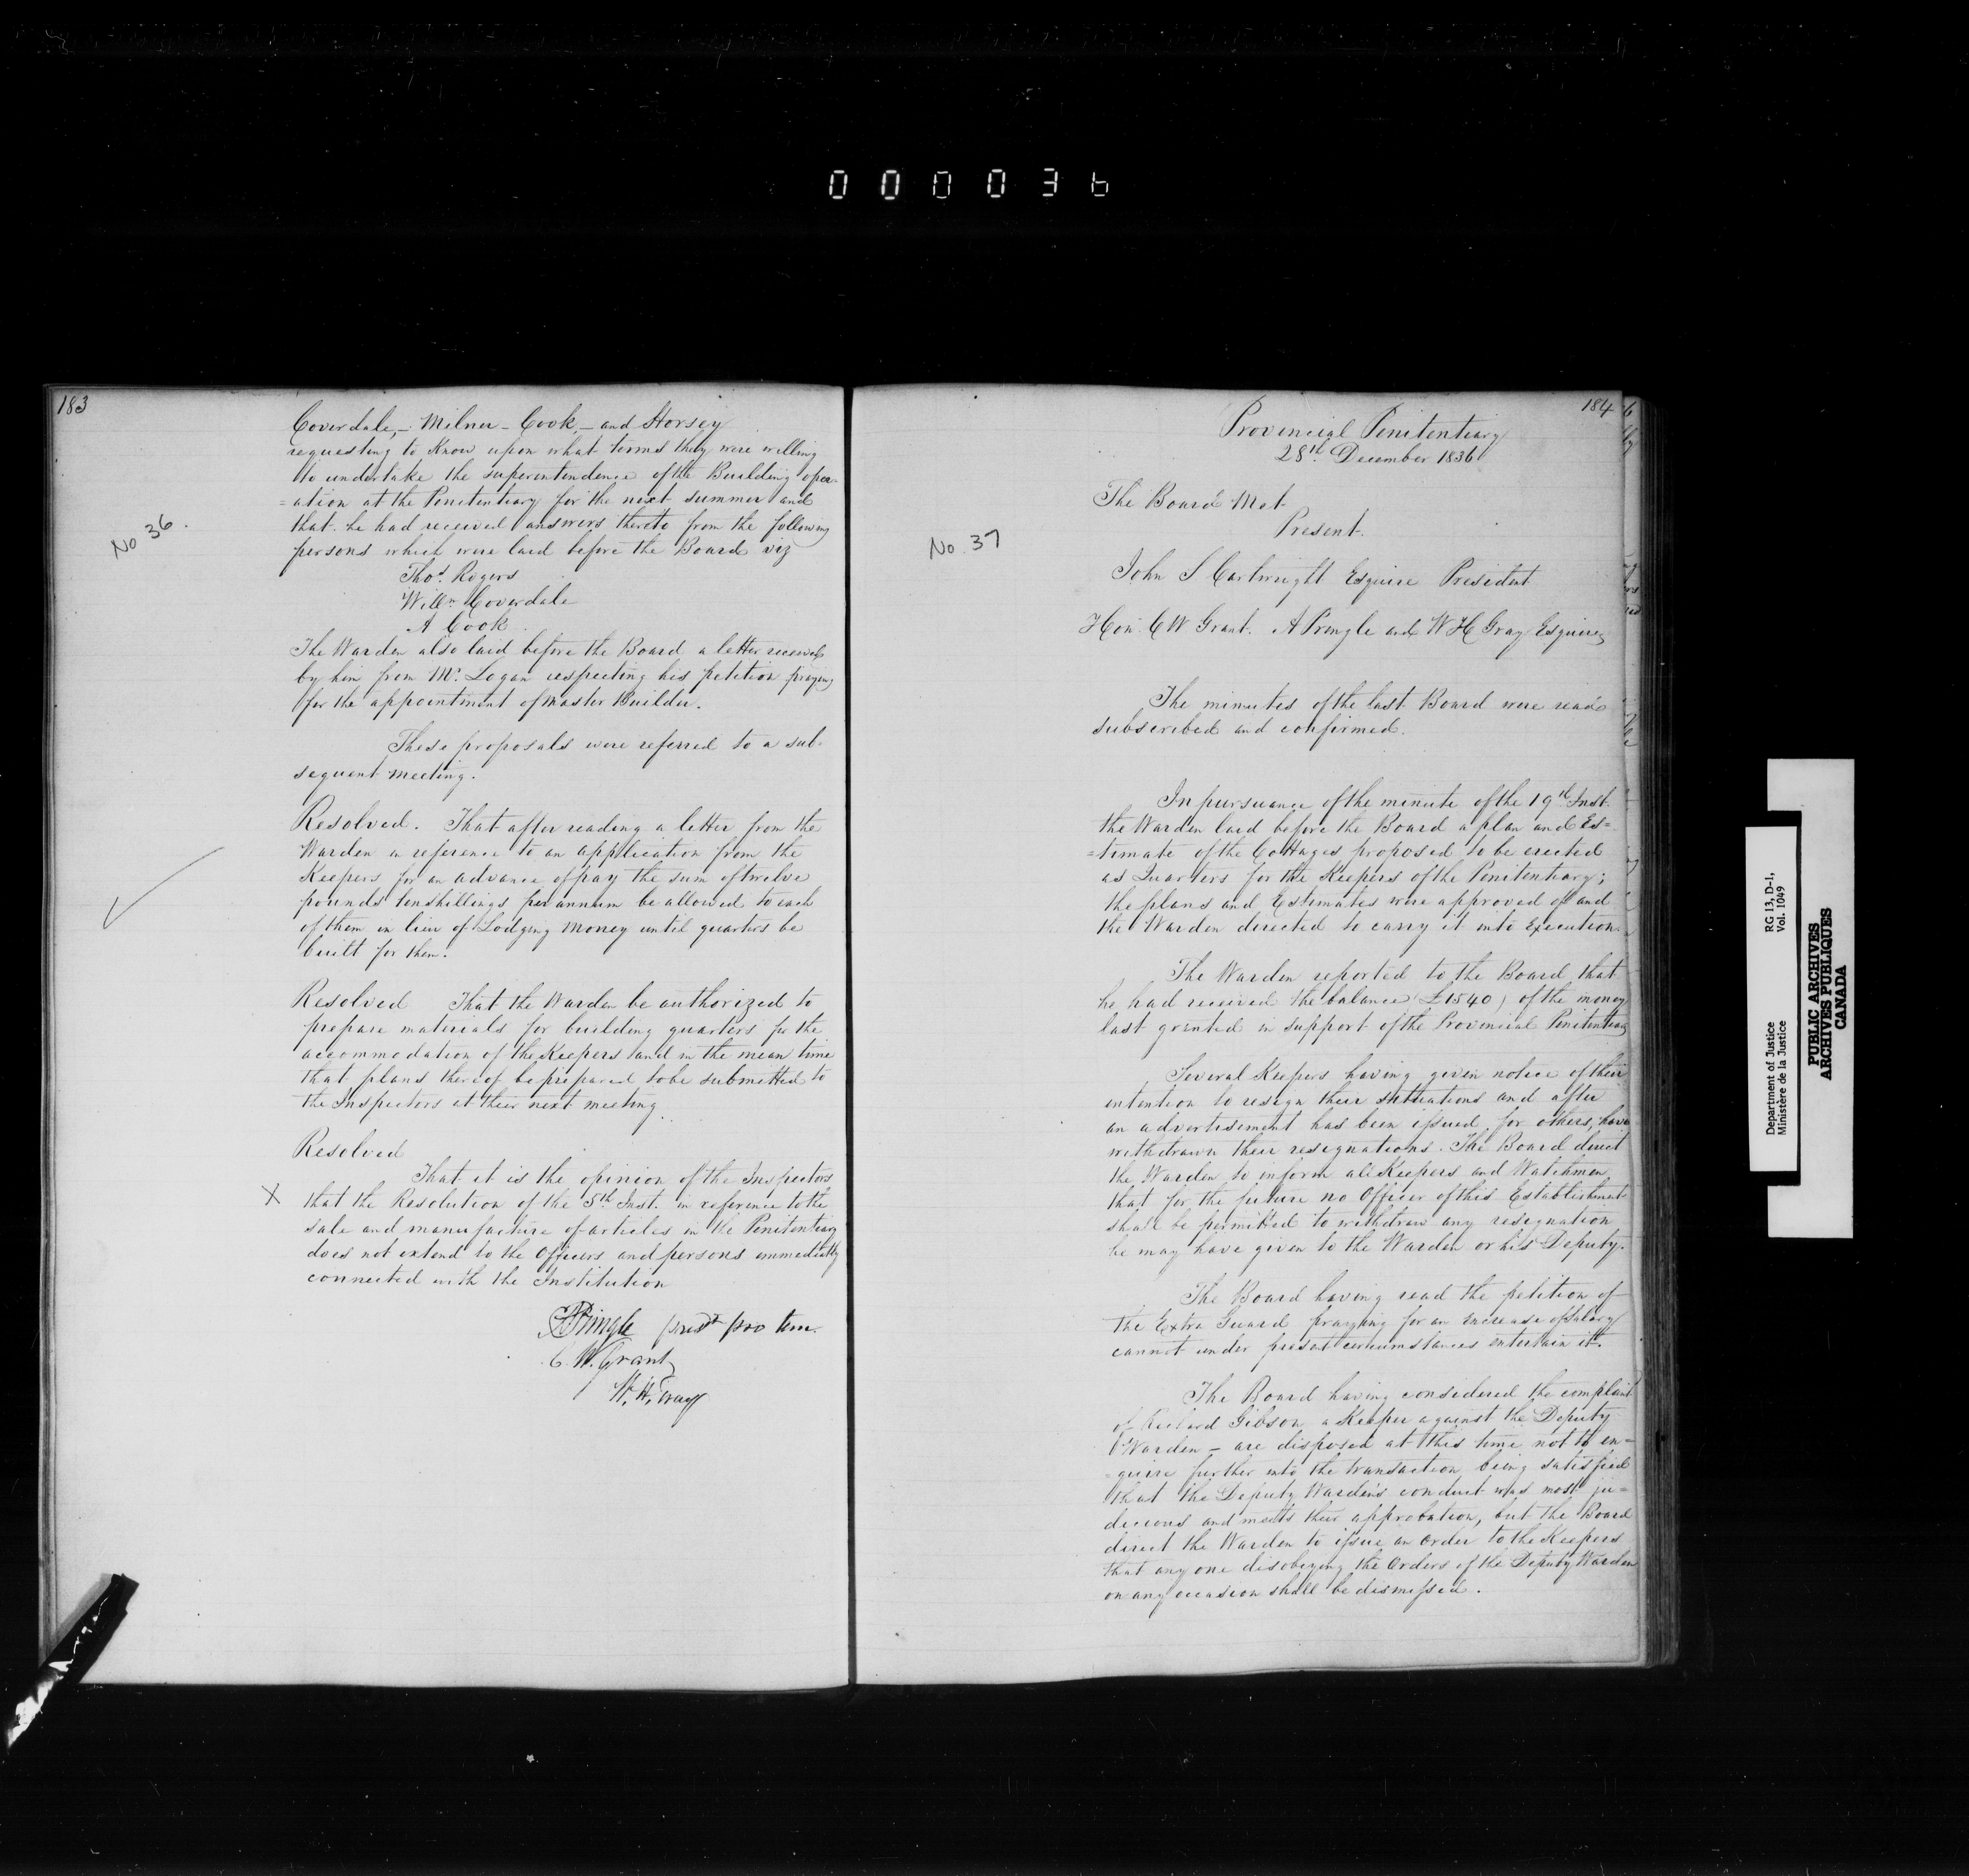 000036
183
Coverdale, – Milner – Cook, – and Horsey
requesting to Know upon what terms they were willing
to undertake the superintendence of the Building oper-
=ation at the Penitentiary for the next summer and
that he had received answers thereto from the following
persons which were laid before the Board viz
No 36.
Thos. Rogers
Willm Coverdale
A Cook
The Warden also laid before the Board a letter received
by him from Mr. Logan respecting his petition praying
for the appointment of Master Builder.
These proposals were referred to a sub-
sequent meeting.
Resolved. That after reading a letter from the
Warden in reference to an application from the
Keepers for an advance of pay the sum of twelve
pounds ten shillings per annum be allowed to each
of them in lieu of Lodging Money until quarters be
built for them.
Resolved That the Warden be authorized to
prepare materials for building quarters for the
accommodation of the Keepers and in the mean time
that plans thereof be prepared to be submitted to
the Inspectors at their next meeting.
Resolved
That it is the opinion of the Inspectors
X that the Resolution of the 5th Inst. in reference to the
sale and manufacture of articles in the Penitentiary
does not extend to the Officers and persons immediately
connected with the Institution
A Pringle presdt pro tem.
C. W. Grant
W. H. Gray
184
Provincial Penitentiary
28th December 1836
The Board Met
Present.
No. 37
John S Cartwright Esquire President
Hon. C W Grant. A Pringle and W H Gray Esquires
The minutes of the last Board were read
subscribed and confirmed.
In pursuance of the minute of the 19th Inst.
the Warden laid before the Board a plan and Es=
=timate of the Cottages proposed to be erected
as Quarters for the Keepers of the Penitentiary;
the plans and Estimates were approved of and
the Warden directed to carry it into Execution.
The Warden reported to the Board that
he had received the balance (£1540) of the money
last granted in support of the Provincial Penitentiary
Several Keepers having given notice of their
intention to resign their situations and after
an advertisement has been issued for others, have
withdrawn their resignations. The Board direct
the Warden to inform all Keepers and Watchmen
that for the future no Officer of this Establishment
shall be permitted to withdraw any resignation
he may have given to the Warden or his Deputy.
The Board having read the petition of
the Extra Guard praying for an increase of Salary
cannot under present circumstances entertain it.
The Board having considered the complaint
of Richard Gibson a Keeper against the Deputy
Warden – are disposed at this time not to en=
=quire further into the transaction being satisfied
that the Deputy Warden's conduct was most ju=
dicious and meets their approbation, but the Board
direct the Warden to issue an order to the Keepers
that any one disobeying the Orders of the Deputy Warden
on any occasion shall be dismissed.
Department of Justice
Ministère de la Justice
RG 13, D-1,
Vol. 1049
PUBLIC ARCHIVES
ARCHIVES PUBLIQUES
CANADA